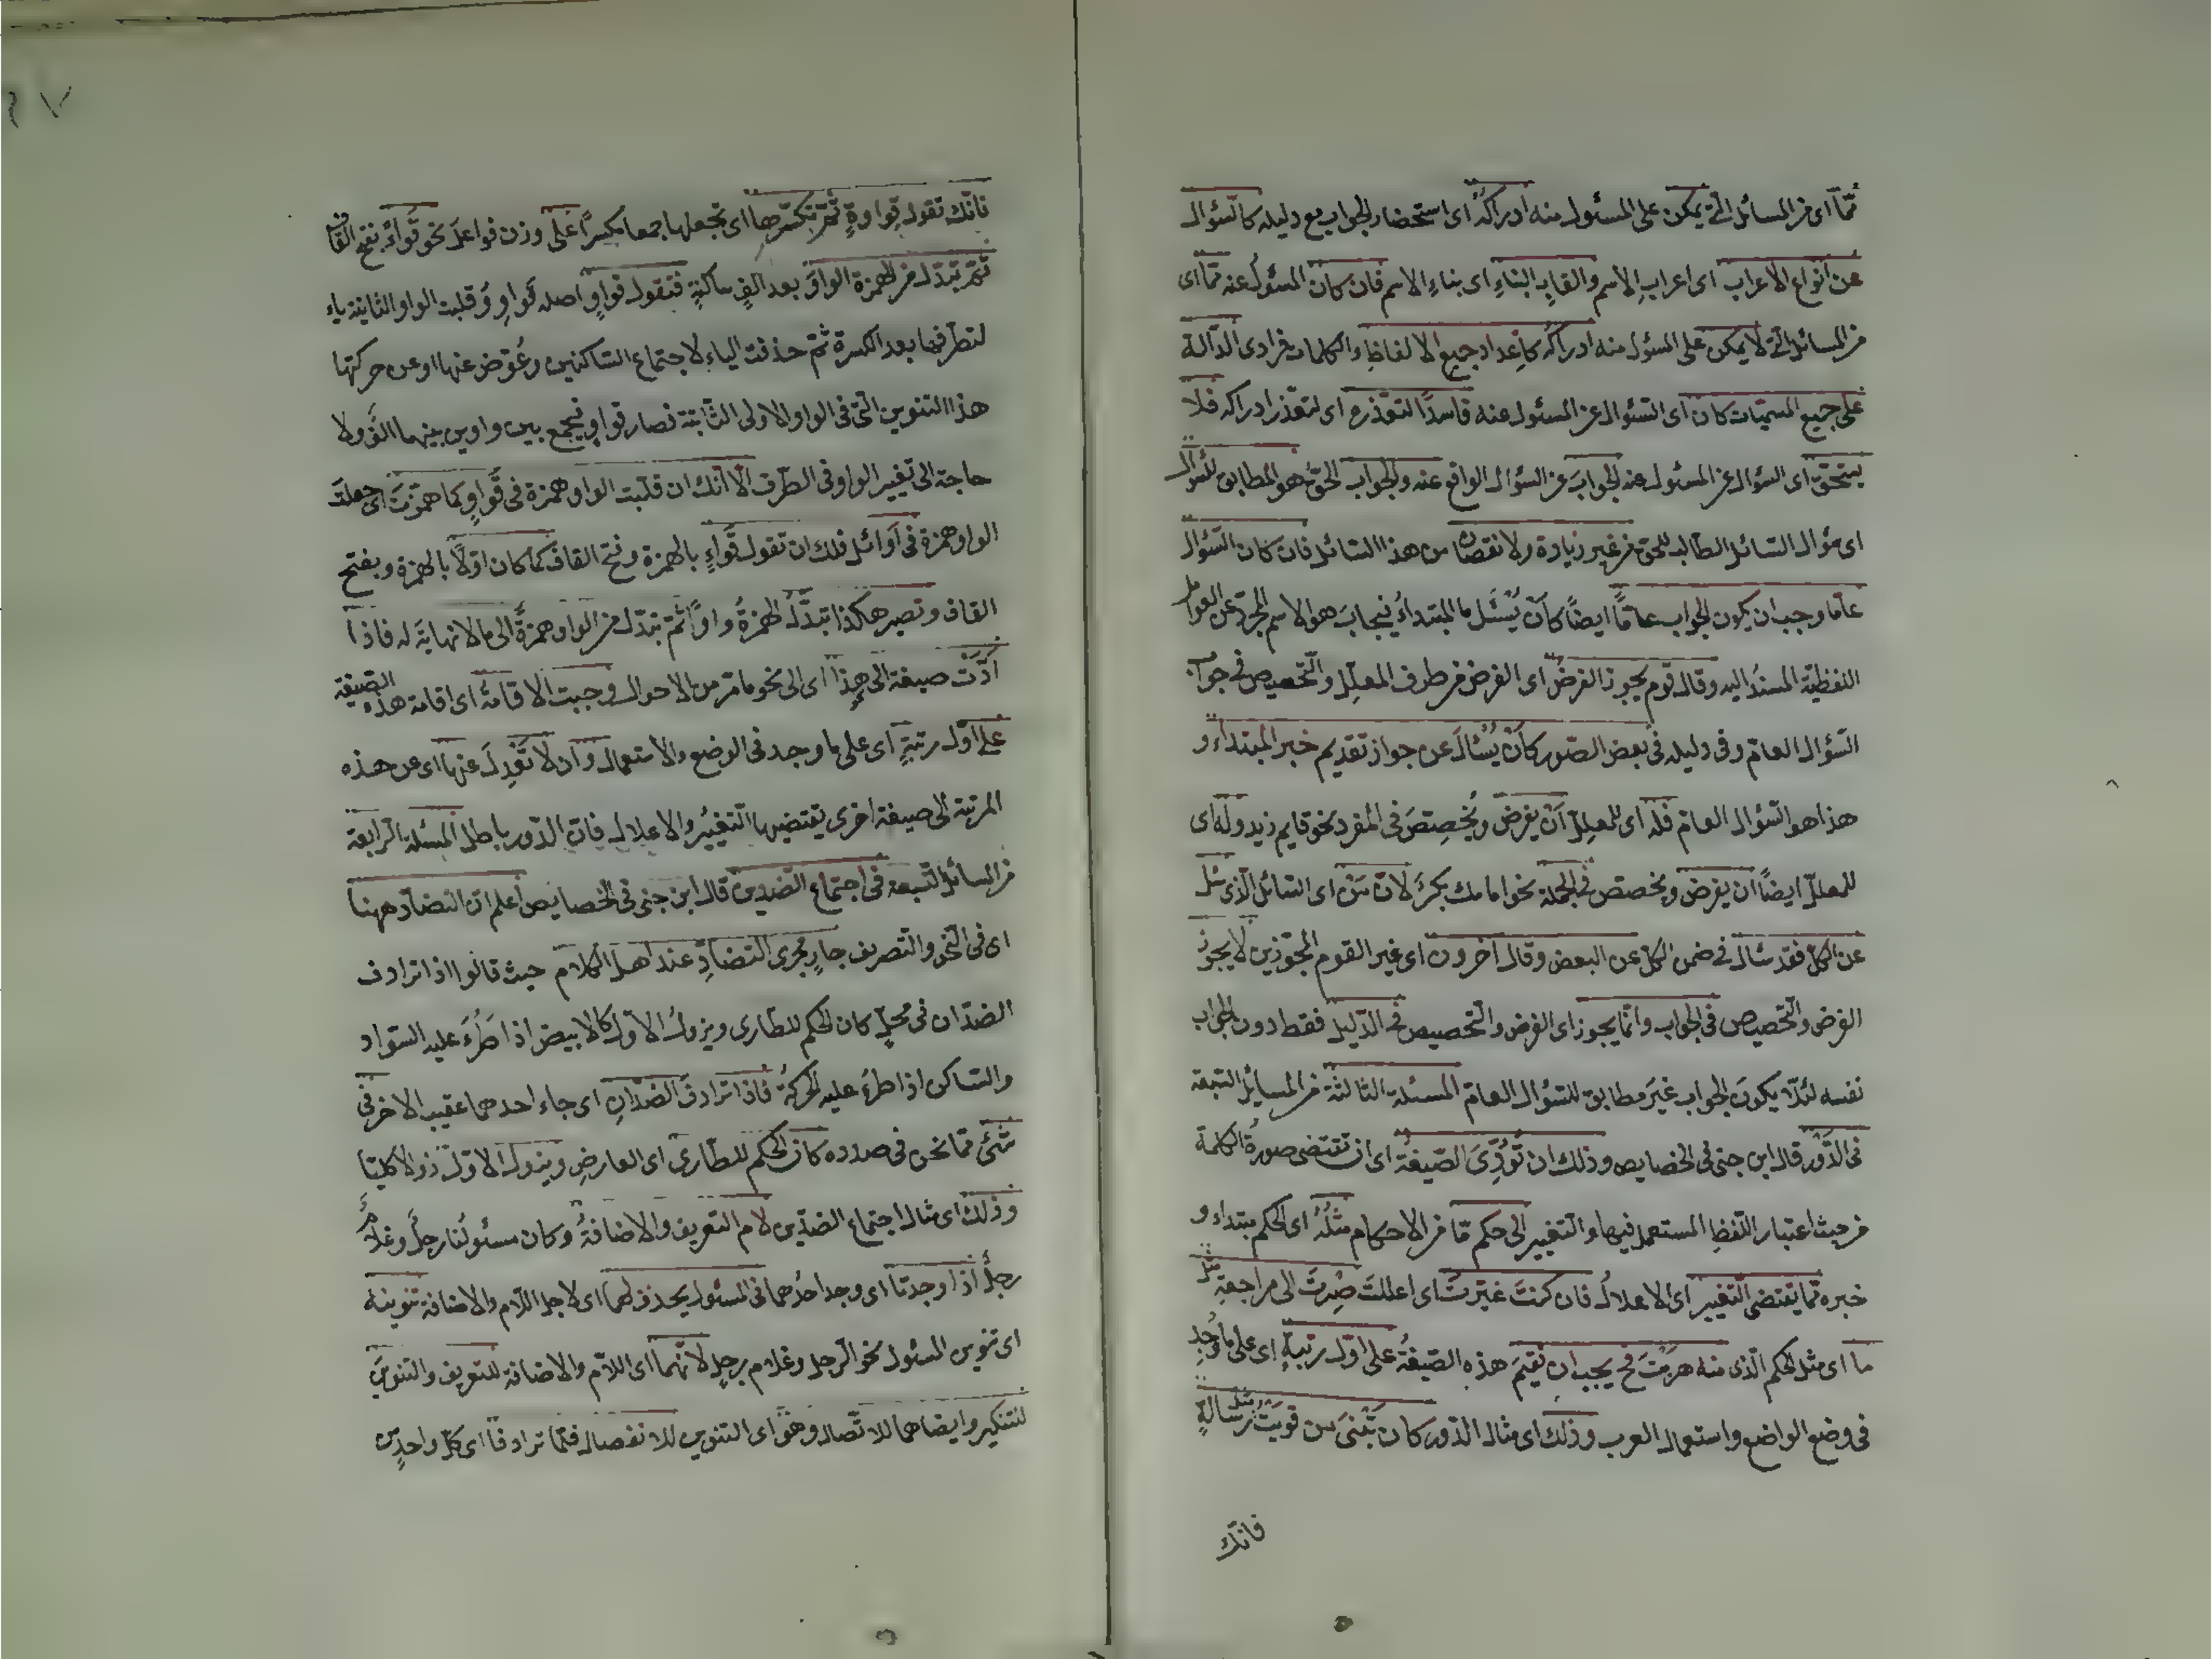 ممّا اى من المسائل الّتى يمكن على المسئول منه ادراكُه اى استحضار الجواب مع دليله كالسّؤال
عن انواع الاعراب اى اعراب الاسم والقاب البناءِ اى بناءِ الاسم فان كان المسؤل عنه ممّا اى
من المسائل الّتى لا يمكن على المسؤل منه ادراكه كاعداد جميع الالفاظِ والكلمات فرادى الدّالة
على جميع المسمّيات كان اى السّئوال عن المسئول عنه فاسدًا لتعذّره اى لتعذّر ادراكه فلا
يستحقّ اى السؤال عن المسئول عنه الجوابَ عن السّؤال الواقع عنه والجواب الحقّ هو المطابق للسّؤال
اى سؤال السّائل الطّالب للحق من غير زيادة ولا نقصان من هذا السّائل فان كان السّؤال
عامّا وجب ان يكون الجواب عامًّا ايضًا كأن يُسْئَل ما المبتداءُ فيجابَ هو الاسم المجرّد عن العوامل
اللفظيّة المسندُ اليه وقال قوم يجوز الفرضُ اى الفرض من طرف المعلّل والتّخصيص فى جواب
السّؤال العامّ وفى دليله فى بعض الصّور كأن يُسْئَالَ عن جواز تقديم خبر المبتداء و
هذا هو السّؤال العامّ فله اى للمعلِّل أن يفرضَ ويُخصِّصَ فى المفرد نحو قايم زيد وله اى
للمعلّل ايضًا أن يفرض ويخصّص فى الجملة نحو امامك بكرٌ لانّ مَن اى السّائل الّذى سئل
عن الكلّ فقد سئال فى ضمن الكلّ عن البعض وقال آخرون اى غير القوم المجوّزين لا يجوز
الفرض والتّخصيص فى الجواب وانّما يجوز اى الفرض والتّخصيص فى الدّليل فقط دون الجواب
نفسه لئلّا يكونَ الجواب غيرَ مطابق للسّؤال العامّ المسئلة الثالثة من المسائل السّبعة
فى الدَّوْر قال ابن جنى فى الخصايص وذلك ان تُؤدِّىَ الصّيغةُ اى ان تقتضى صورةُ الكلمة
من حيث اعتبار اللّفظِ المستعمل فيها والتّغيير الى حكم مّا من الاحكام مثلُهُ اى الحكم مبتداء و
خبره ممّا يقتضى التّغيير اى الاعلالَ فان كنتَ غيّرتَ اى اعللتَ صِرتَ الى مراجعةِ مثل
ما اى مثل الحكم الّذى منه هربتَ فح يجب ان نقيمَ هذه الصّيغةُ على اوّل رتبةٍ اى على ما وُجِد
فى وضع الواضع واستعمال العرب وذلك اى مثال الدّور كان تَبْنىَ من قويتُ مثل رسالةٍ
فانّك
فانّك تقول قِواوةٍ ثمّ تكسّرها اى تجعلها جمعا مكسرًا على وزن فواعل نحو قَواءٍ بفتح القاف
ثمّ تبدّل من الهمزة الواوَ بعد الفٍ ساكنةٍ فتقول قواوٍ اصله قواوِوُ قلبت الواو الثانية ياء
لتطرّفها بعد الكسرة ثمّ حذفت الياء لاجتماع السّاكنين وعُوّض عنها او عن حركتها
هذا التنوين الّتى فى الواو الاولى الثّابتة فصار قواوٍ فيجمع بين واوين بينهما الفٌ ولا
حاجة الى تغيير الواو فى الطّرف الّا انّك ان قلبت الواو همزة فى قَواوٍ كما همزتَ اى جعلتَ
الواو همزة فى اَوائل فلك ان تقول قَواءٍ بالهمزة وفتح القاف كما كان اوّلًا بالهمزة وبفتح
القاف وتصير هكذا تبدّلُ الهمزةُ واوًا ثمّ تبدّل من الواو همزةً الى ما لا نهايةَ له فاذا
ادّت صيغة الى هذا اى الى نحو ما مرّ من الاحوال وجبت الاقامةُ اى اقامة هذه الصّيغة
على اوّل مرتبةٍ اى على ما وجد فى الوضع والاستعمال وان لا تَعْدِلَ عنها اى عن هذه
المرتبة الى صيغة اخرى يقتضيها التّغيير والاعلال فانّ الدّور باطل المسئلة الرّابعة
من المسائل السّبعة فى اجتماع الضّدين قال ابن جنى فى الخصايص اعلم انّ التضادّ ههنا
اى فى النّحو والتّصريف جارٍ مجرى التضادِّ عند اهل الكلام حيث قالوا اذا ترادف
الضدّان فى محلٍّ كان الحكم للطّارى ويزولُ الاوّل كالابيض اذا طَرَءَ عليه السّواد
والسّاكن اذا طرءَ عليه الحركةُ فاذا ترادفَ الضدّانِ اى جاء احدهما عقيب الاخر فى
شئىٍ ممّا نحن فى صدده كان الحكم للطّارى اى العارضِ ويزول الاوّل زوالا كليّا
وذلك اى مثال اجتماع الضدّين لام التعريف والاضافةُ وكان مسئولُنا رجلٌ وغلامُ
رجلٍ اذا وجدتا اى وجد احدُهما فى المسئول يحذف لهما اى لاجل اللّام والاضافة تنوينه
اى تنوين المسئول نحو الرّجل وغلام رجلٍ لانّهما اى اللّام والاضافة للتعريف والتنوينَ
للتنكير وايضا هما للاتّصال وهو اى التنوين للانفصال فلمّا ترادفا اى كلّ واحدٍ من